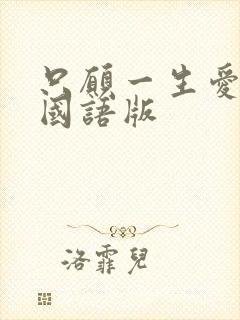 只願一生愛
國語版
洛霏兒